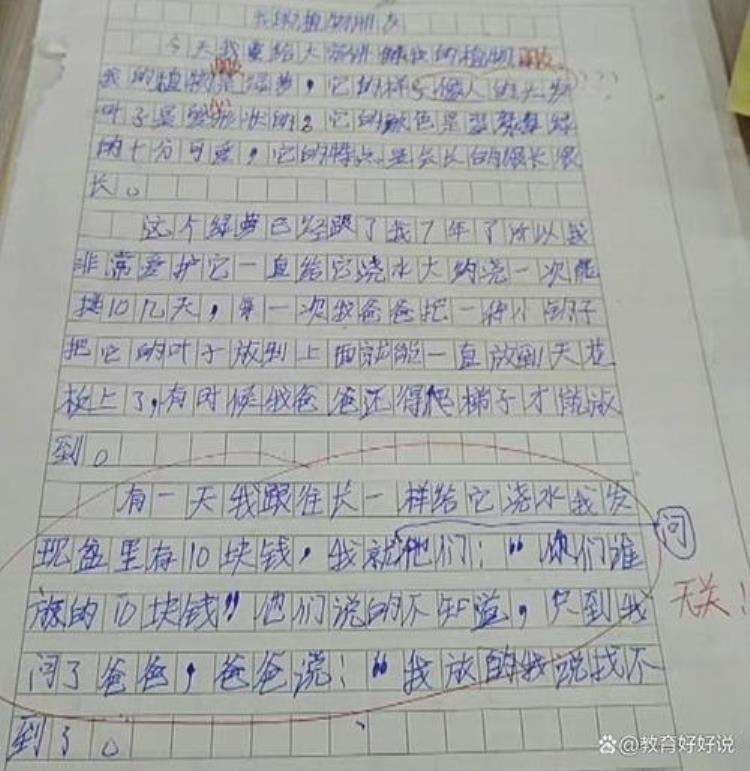 我的植物朋友
今天我要给大家讲 的植物
我的植物是绿萝，它的样子像人的头发
叶子是 形状的。它的颜色是 绿
的十分可爱，它的特点是长长的很长很
长。
这个绿萝已经跟了我7年了所以我
非常爱护它一直给它浇水大约浇一次能
挺10几天，有一次我爸爸把一种小钩子
把它的叶子放到上面就能一直放到天花
板上了，有时候我爸爸还得爬梯子才能放
到。
有一天我跟往长一样给它浇水我发
现盆里有10块钱，我就他们：“你们谁
问
放的10块钱”他们说的不知道，只到我
无关！
问了爸爸，爸爸说：“我放的我说找不
到了。
@教育好好说